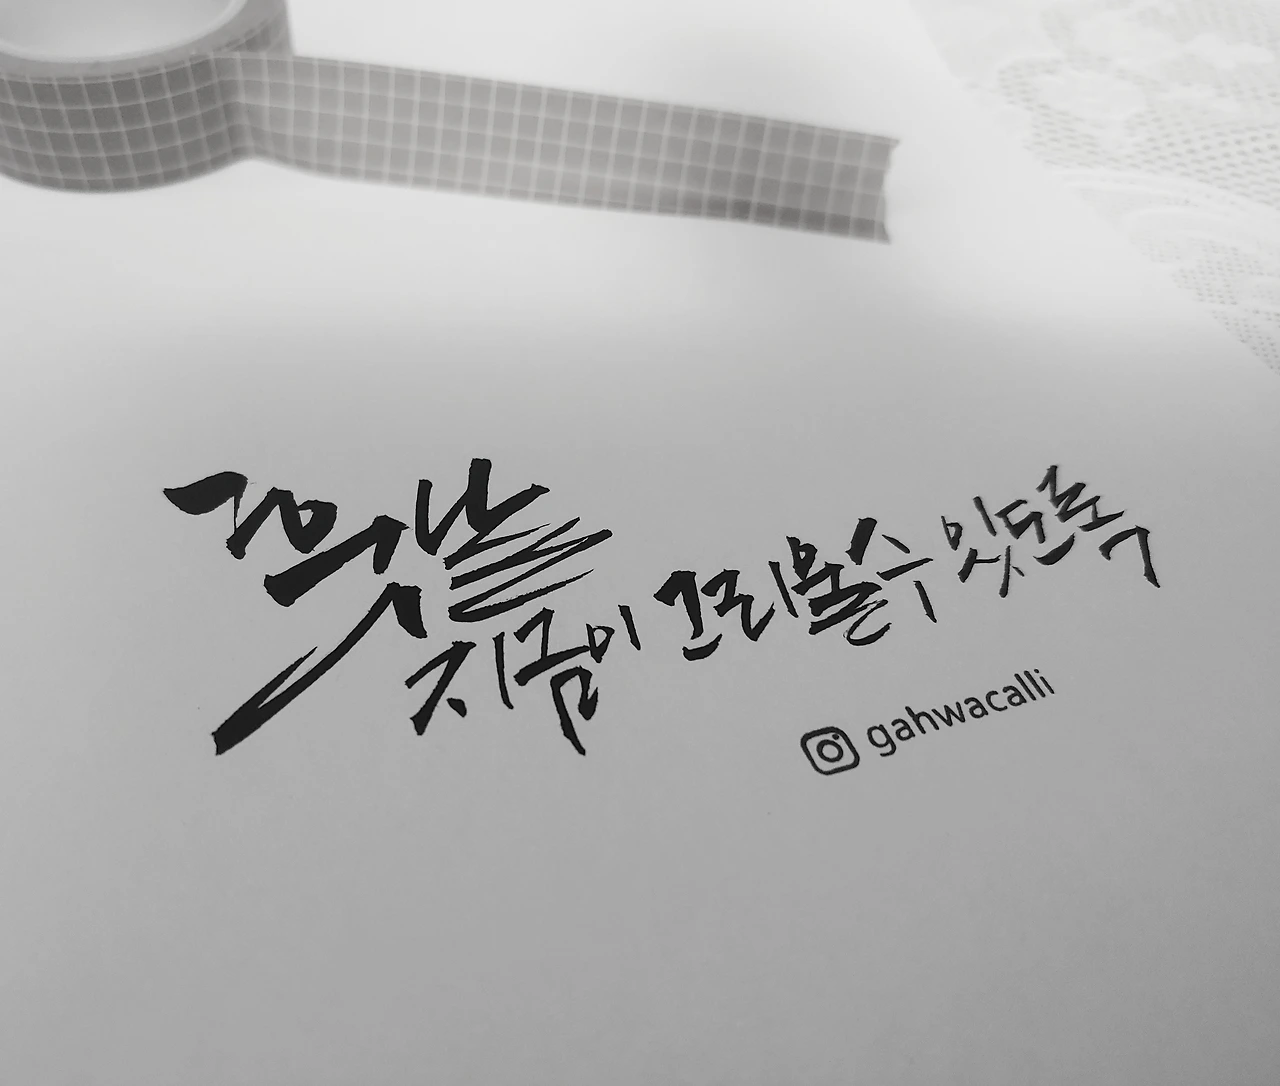 훗날
지금이 그리울수 있도록
gahwacalli